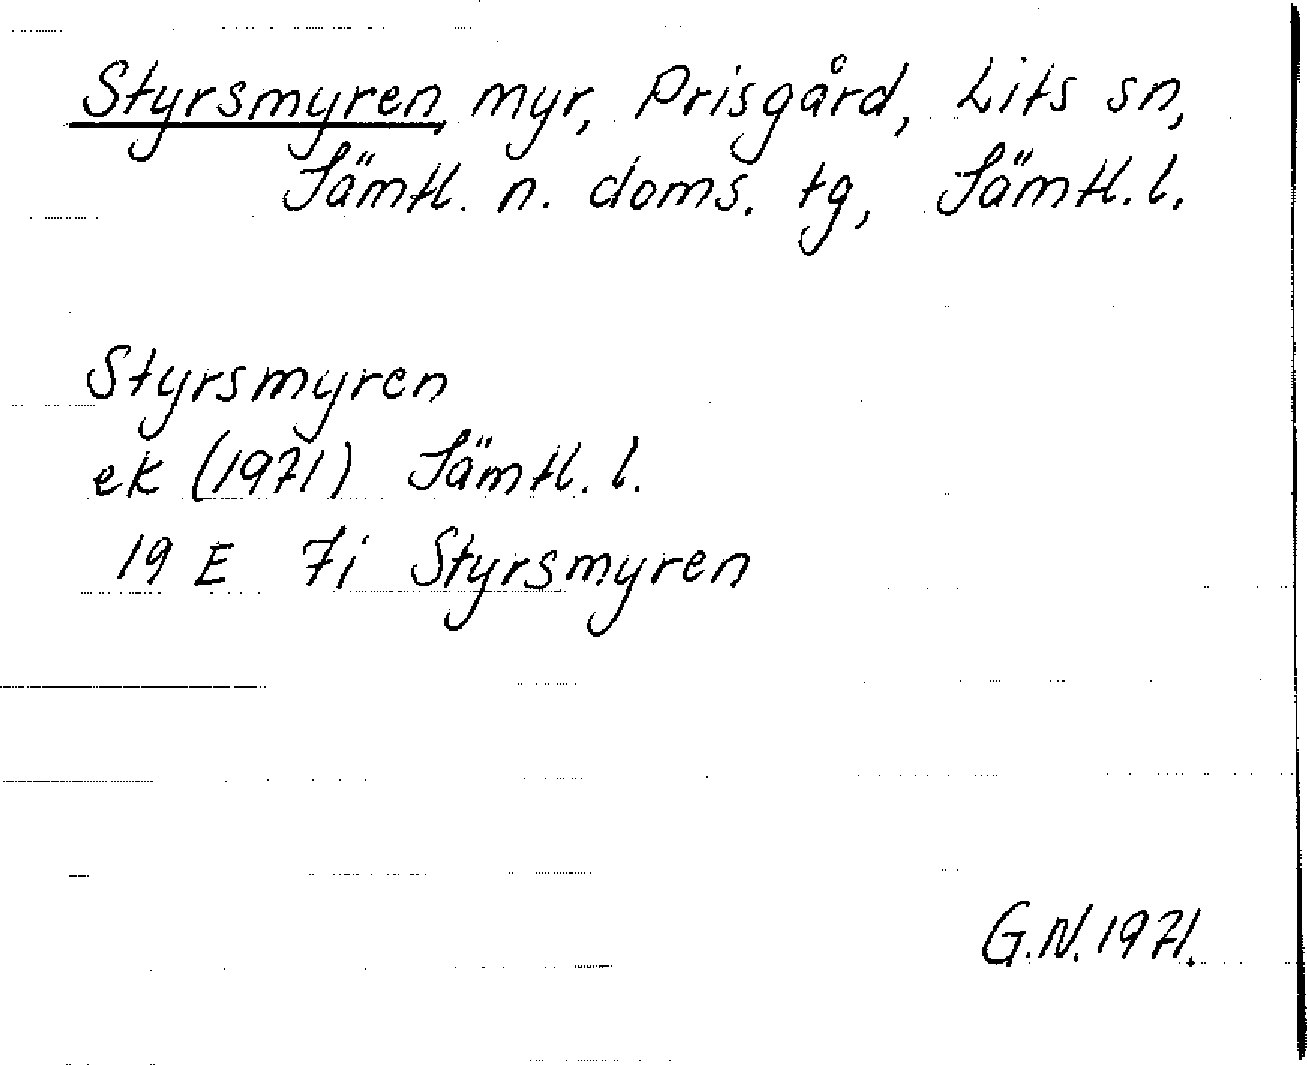 Styrsmyren, myr, Prisgård, Lits sn,
Jämtl. n. doms. tg, Jämtl. l.
Styrsmyren
ek (1971) Jämtl. l.
19 E 7i Styrsmyren
G.N. 1971.